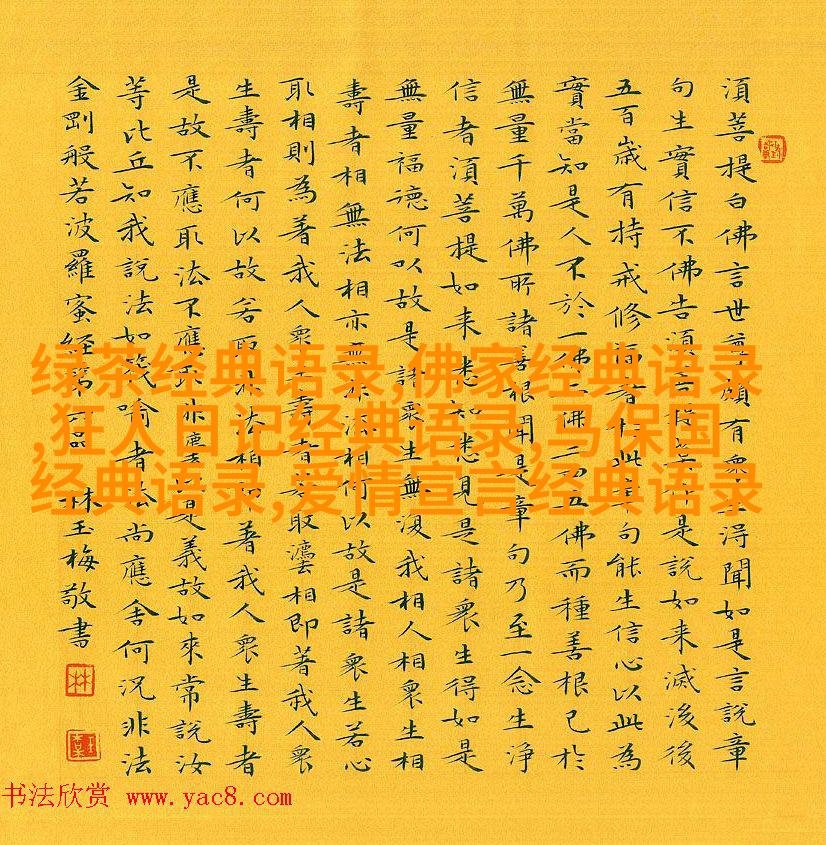 須菩提白佛言世尊頗有衆生得聞如是言說章
句生實信不佛告須菩提莫作是說如来滅後後
五百歲有持戒修福者於此章句能生信心以此為
實當知是人不於一佛二佛三四五佛而種善根已於
無量千萬佛所諸善根聞是章句乃至一念生淨
信者須菩提如来悉知悉見是諸衆生得如是
無量福德何以故是諸衆生無復我相人相衆生相
壽者相無法相亦無非法相何以故是諸衆生若心
取相則為著我人衆生壽者若取灋相即著我人衆
生壽者何以故若取非法相即著我人衆生壽者
是故不應取法不應取非灋以是義故如來常說汝
等比丘知我說法如筏喻者法尚應舍何況非法
金剛般若波羅蜜经第六品 林玉梅敬書
林
绿茶经典语录,佛家经典语录
,狂人日记经典语录,马保国
经典语录,爱情宣言经典语录
书法欣赏 www.yac8.com